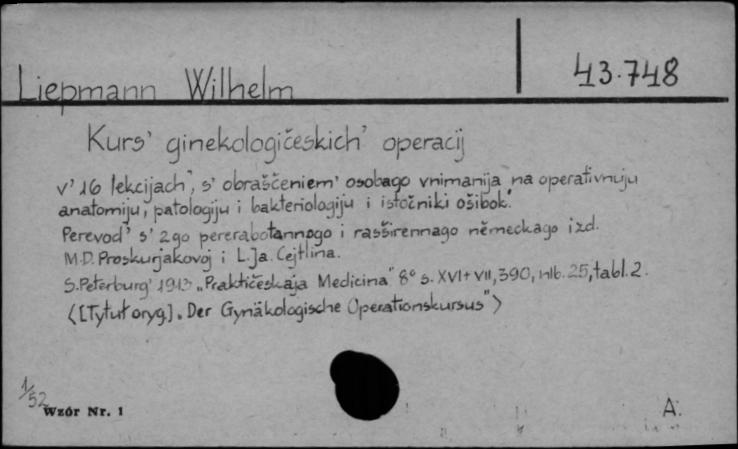 Liepmann Wilhelm 43.748
Kurs' ginekologičeskich' operacij
v' 16 lekcijach', s' obraščeniem' osobago vnimanija na operativnuju
anatomiju, patologiju i bakteriologiju i istočniki ošibok.
Perevod' s' 2go pererabotannogo i rasširennago německago izd.
M.D. Proskurjakovoj i L.Ja. Cejtlina.
S.Peterburg' 1913 „Praktičeskaja Medicina" 8° s. XVI+VII, 390, nlb. 25, tabl. 2.
<[Tytuł oryg.] „Der Gynäkologische Operationskursus">
1/52
Wzór Nr. 1 A.